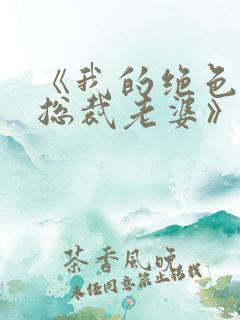 《我的绝色
总裁老婆》
茶香风晚
未经同意禁止转载